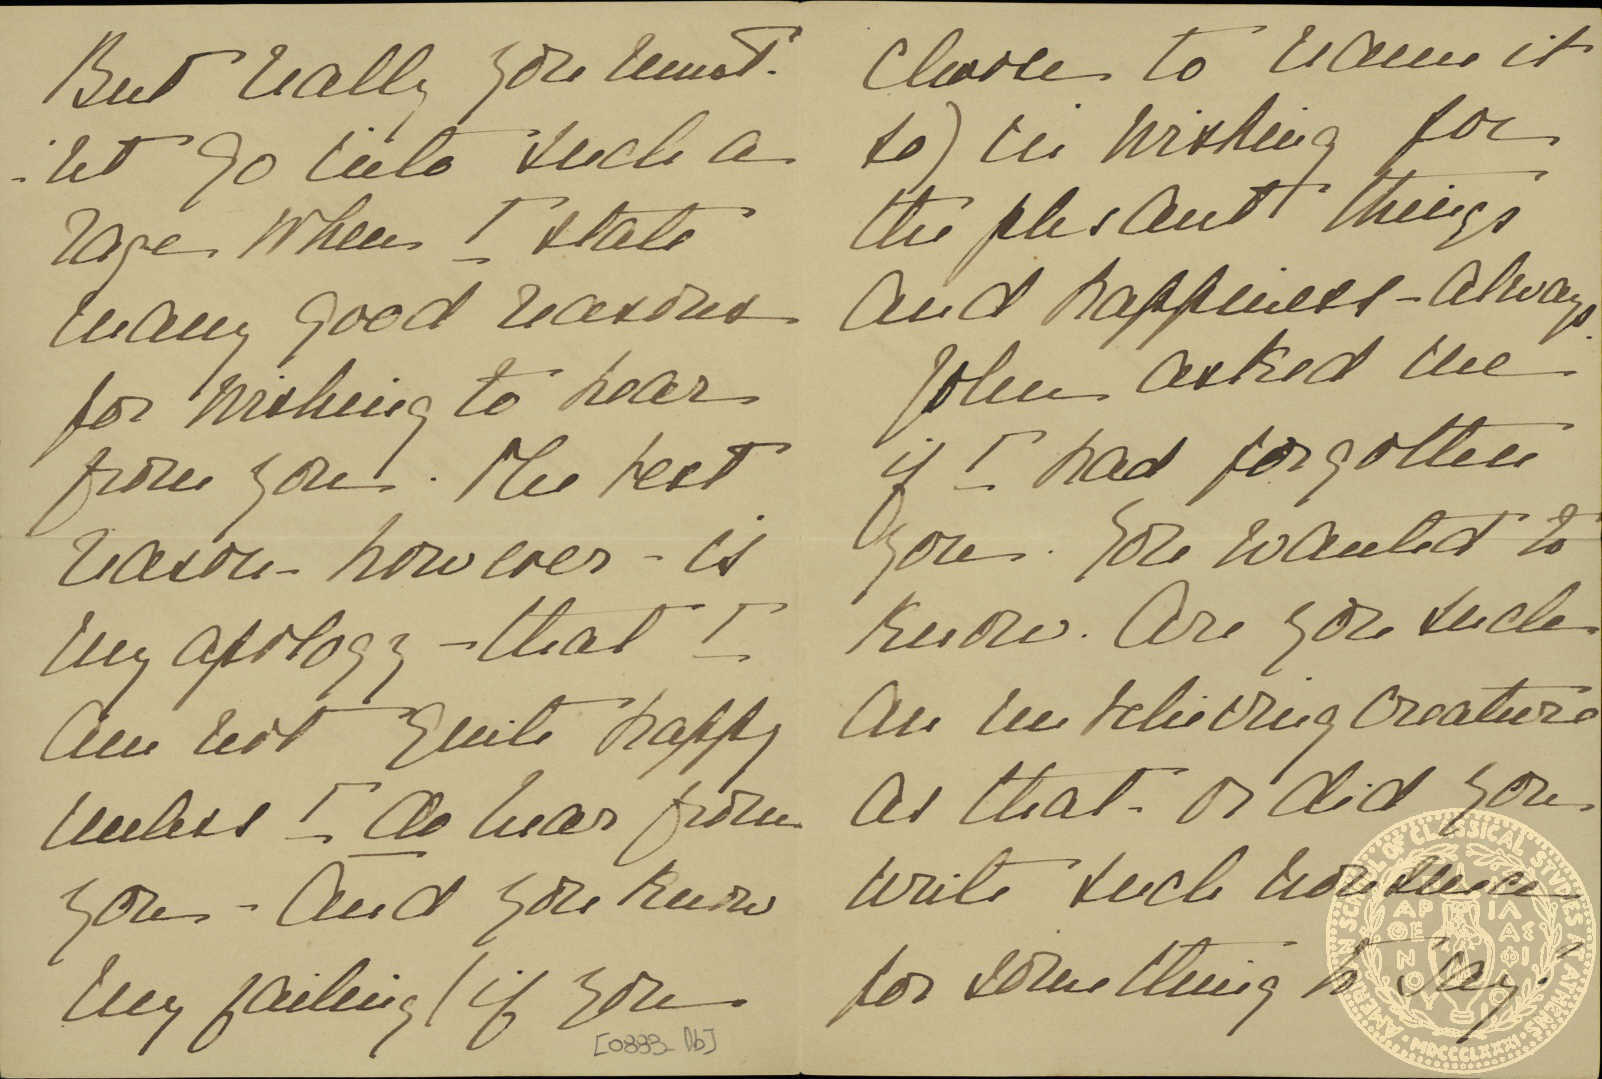 But really you must.
not go into such a
rage when I state
many good reasons
for wishing to hear
from you. The best
reason - however - is
my apology - that I
am not quite happy
unless I do hear from
you - And you know
my failing (if you
[0833_Db]
choose to name it
so) in wishing for
the plesant things
and happiness - always.
John asked me
if I had forgotten
you. You wanted to
know. Are you such
an unbelieving creature
as that - or did you
write such nonsense
for something to say?
AMERICAN SCHOOL OF CLASSICAL STUDIES AT ATHENS
MDCCCLXXXI